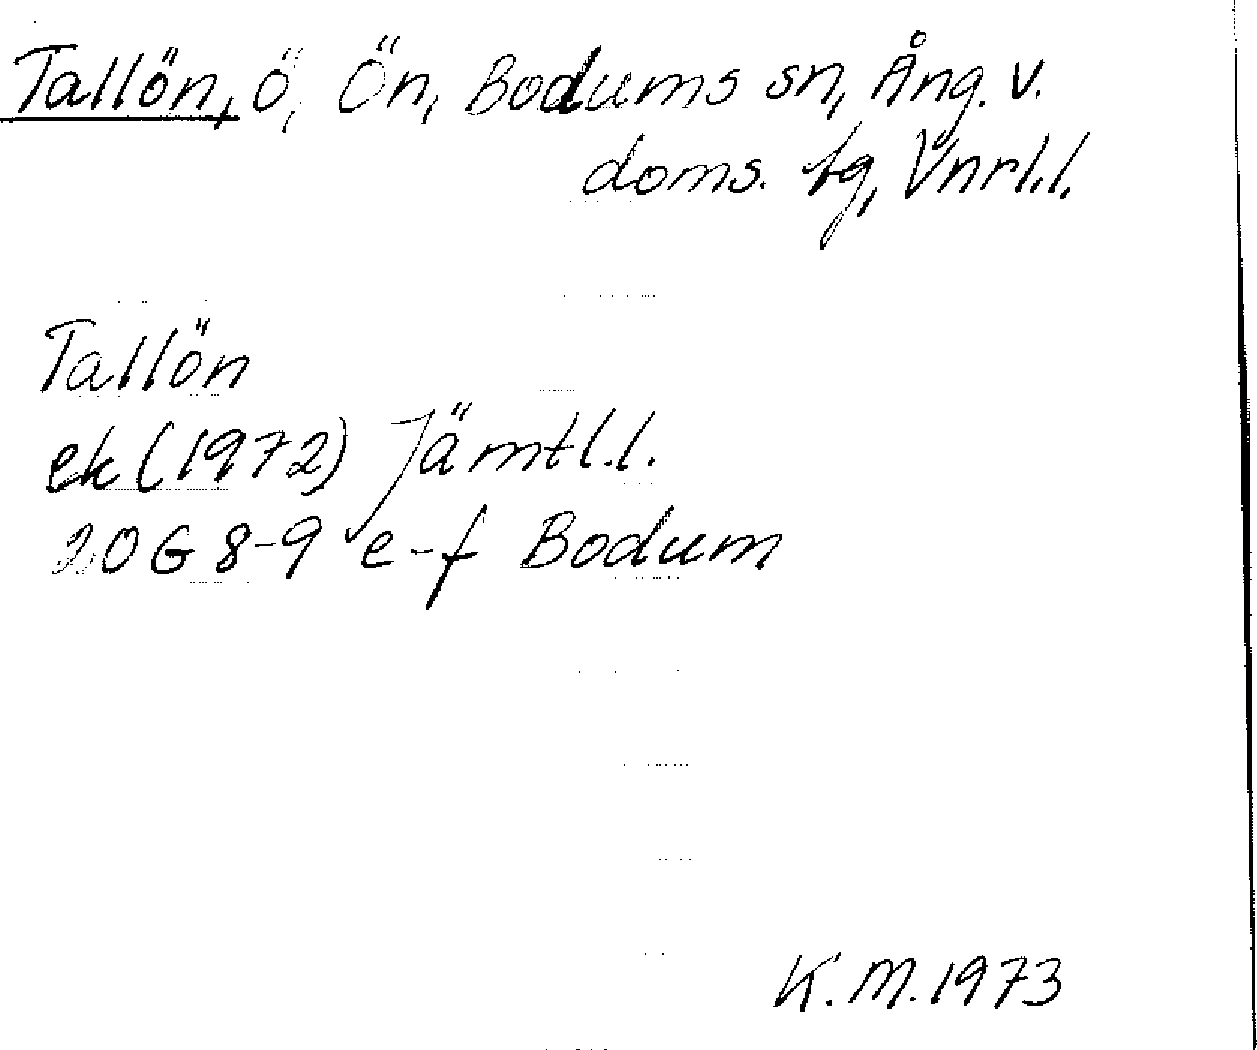 Tallön, ö, Ön, Bodums sn, Ång. v.
doms. tg, Vnrl.l.
Tallön
ek (1972) Jämtl.l.
20 G 8-9 e-f Bodum
K.M. 1973